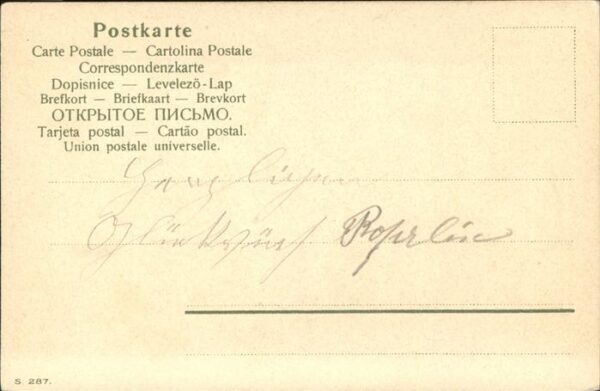 Postkarte
Carte Postale — Cartolina Postale
Correspondenzkarte
Dopisnice — Levelezö-Lap
Brefkort — Briefkaart — Brevkort
ОТКРЫТОЕ ПИСЬМО.
Tarjeta postal — Cartão postal.
Union postale universelle.
Herzlichen
Glückwunsch
S. 287.